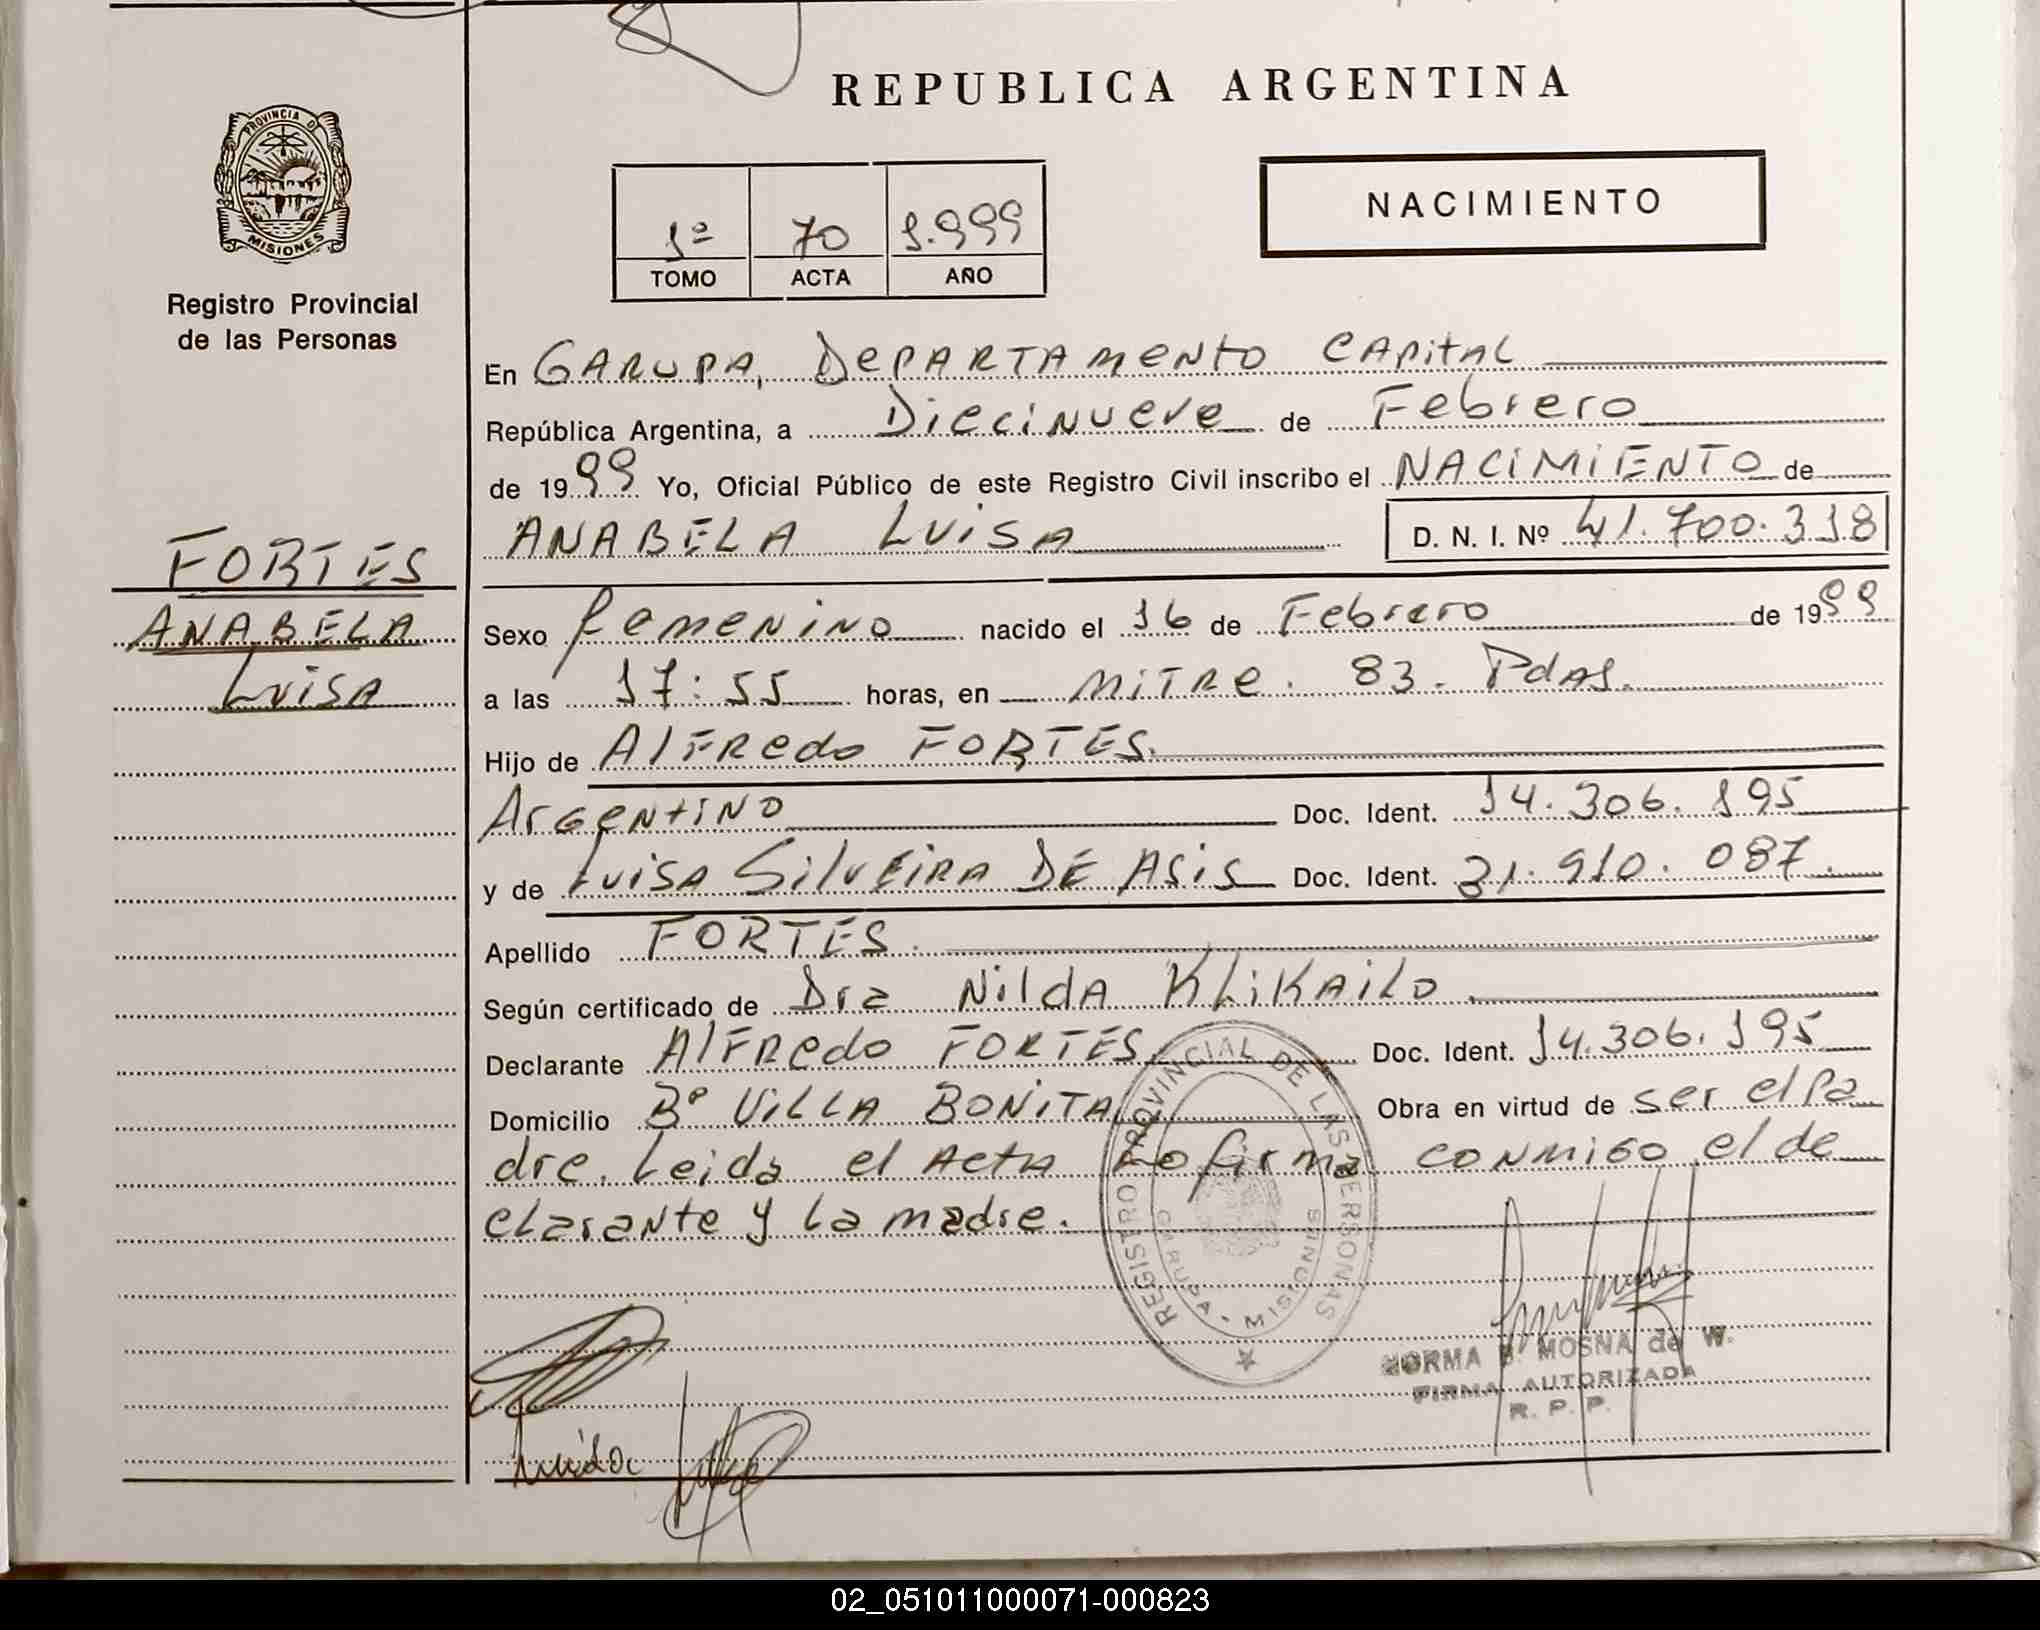 REPUBLICA ARGENTINA
PROVINCIA DE
MISIONES
Registro Provincial
de las Personas
1º 70 1.999
TOMO ACTA AÑO
NACIMIENTO
En GARUPA, DEPARTAMENTO CAPITAL
República Argentina, a Diecinueve de Febrero
de 1999 Yo, Oficial Público de este Registro Civil inscribo el NACIMIENTO de
ANABELA LUISA D. N. I. Nº 41.700.318
FORTES
ANABELA
LUISA
Sexo femenino nacido el 16 de Febrero de 1999
a las 17:55 horas, en MITRE. 83. Pdas.
Hijo de Alfredo FORTES.
Argentino Doc. Ident. 14.306.195
y de Luisa Silveira DE ASIS Doc. Ident. 21.910.087.
Apellido FORTES.
Según certificado de Dra Nilda KLIKAILO.
Declarante Alfredo FORTES Doc. Ident. 14.306.195
Domicilio Bº VILLA BONITA Obra en virtud de ser el Pa
dre. Leida el Acta Lo firma conmigo el de
clarante y La madre.
REGISTRO PROVINCIAL DE LAS PERSONAS
GARUPA - MISIONES
NORMA B. MOSNA de W.
FIRMA AUTORIZADA
R. P. P.
02_051011000071-000823